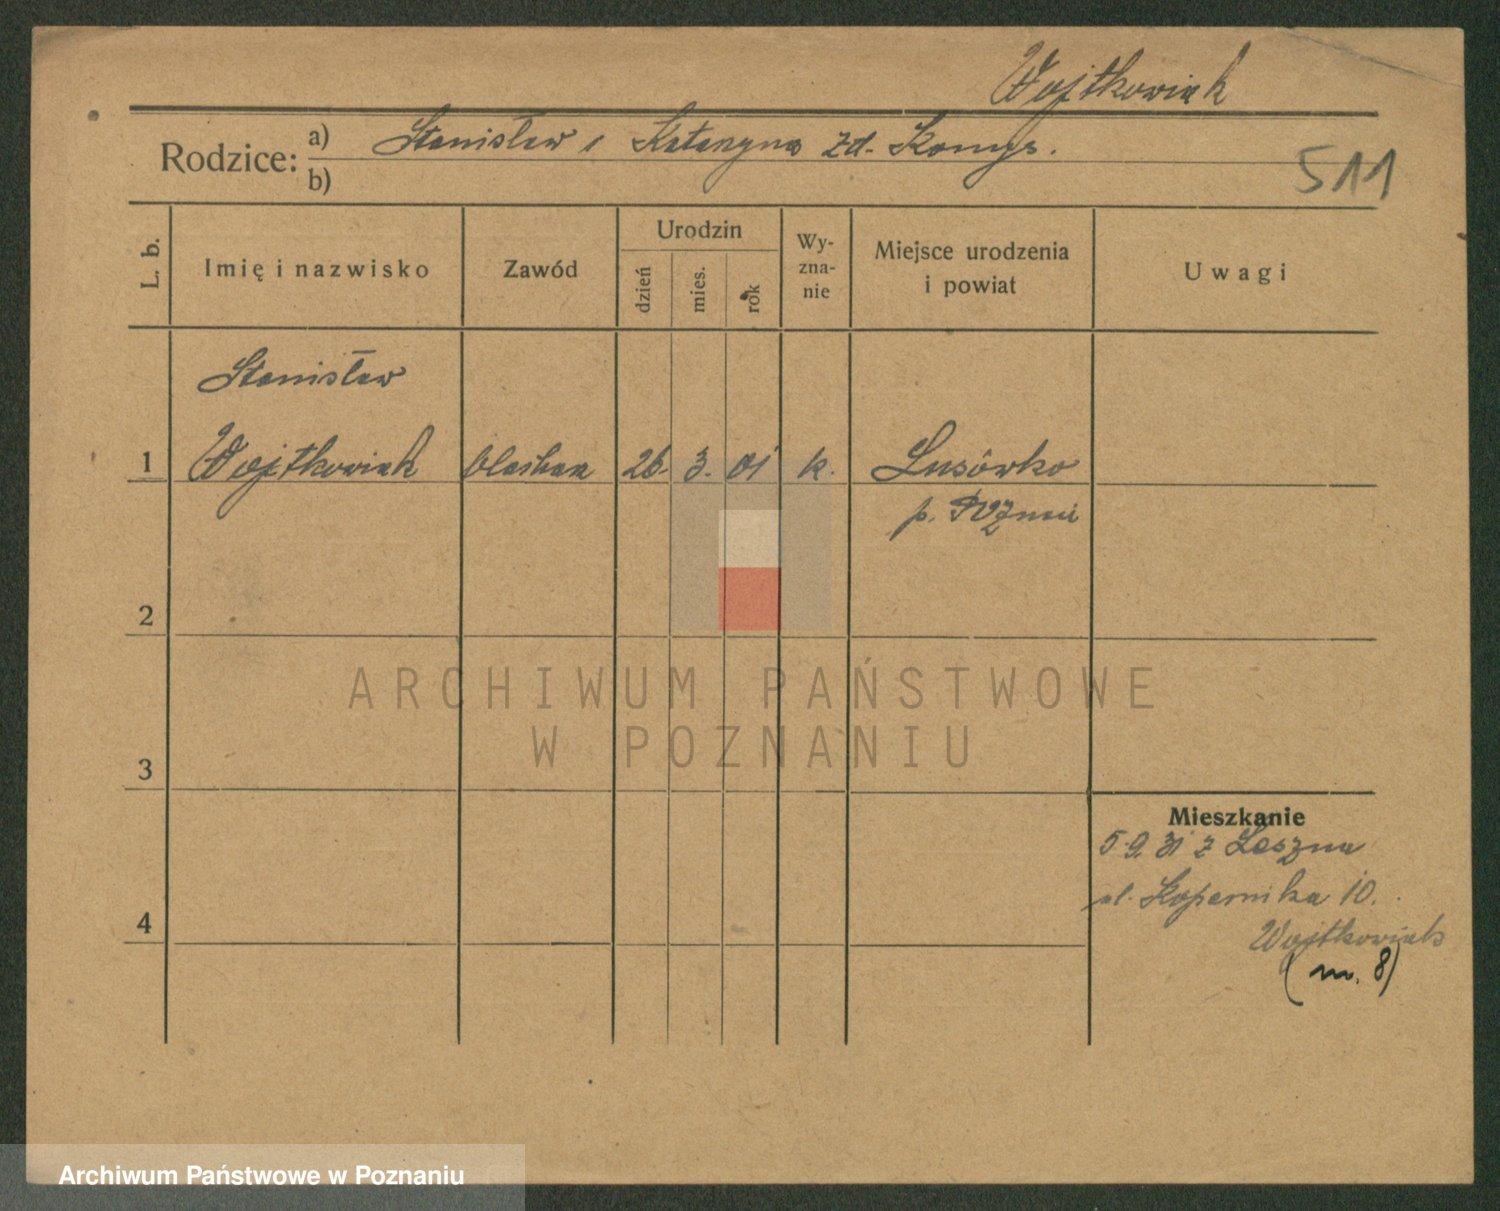 Wojtkowiak
Rodzice: a) Stanisław i Katarzyna zd.
b)
511
L. b.
Imię i nazwisko
Zawód
Urodzin
dzień
mies.
rok
Wy-
zna-
nie
Miejsce urodzenia
i powiat
Uwagi
Stanisław
1 Wojtkowiak 26. 3. 01 k. Lusówko
p. Poznań
2
ARCHIWUM PAŃSTWOWE
W POZNANIU
3
Mieszkanie
5.9.31 z Leszna
ul. Kopernika 10.
4
Wojtkowiak
(m. 8)
Archiwum Państwowe w Poznaniu